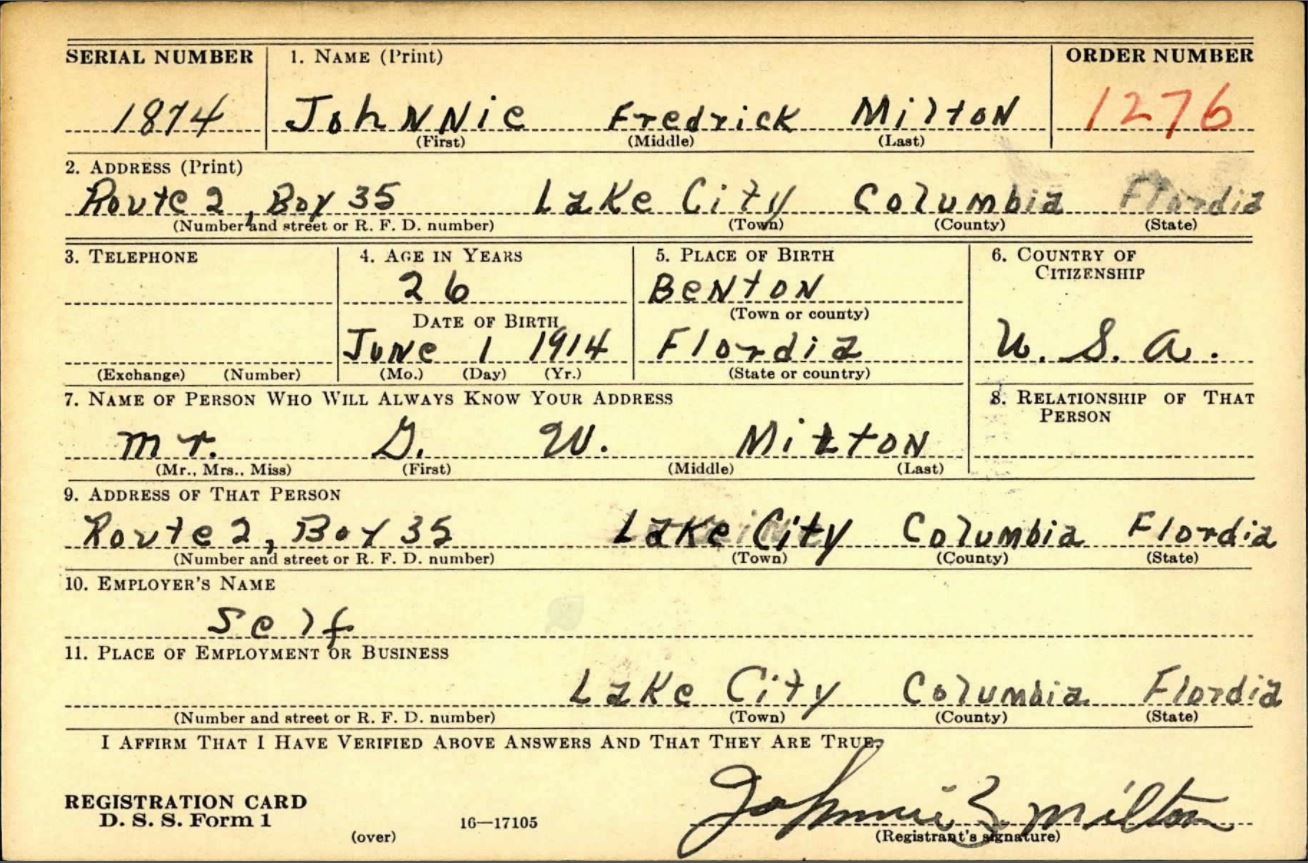 SERIAL NUMBER 1. NAME (Print) ORDER NUMBER
1874 Johnnie Fredrick Milton 1276
(First) (Middle) (Last)
2. ADDRESS (Print)
Route 2, Box 35 Lake City Columbia Flordia
(Number and street or R. F. D. number) (Town) (County) (State)
3. TELEPHONE 4. AGE IN YEARS 5. PLACE OF BIRTH 6. COUNTRY OF
CITIZENSHIP
26 Benton
(Town or county)
DATE OF BIRTH
June 1 1914 Flordia U. S. A.
(Exchange) (Number) (Mo.) (Day) (Yr.) (State or country)
7. NAME OF PERSON WHO WILL ALWAYS KNOW YOUR ADDRESS 8. RELATIONSHIP OF THAT
PERSON
Mr. G. W. Milton
(Mr., Mrs., Miss) (First) (Middle) (Last)
9. ADDRESS OF THAT PERSON
Route 2, Box 35 Lake City Columbia Flordia
(Number and street or R. F. D. number) (Town) (County) (State)
10. EMPLOYER'S NAME
Self
11. PLACE OF EMPLOYMENT OR BUSINESS
Lake City Columbia Flordia
(Number and street or R. F. D. number) (Town) (County) (State)
I AFFIRM THAT I HAVE VERIFIED ABOVE ANSWERS AND THAT THEY ARE TRUE.
REGISTRATION CARD
D. S. S. Form 1 (over) 16—17105 Johnnie F Milton
(Registrant's signature)